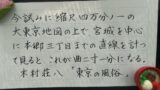 今試みに縮尺四万分ノ一の
大東京地図の上で宮城を中心
に本郷三丁目までの直線を計っ
て見ると これが曲二寸一分になる。
木村荘八 “東京の風俗„